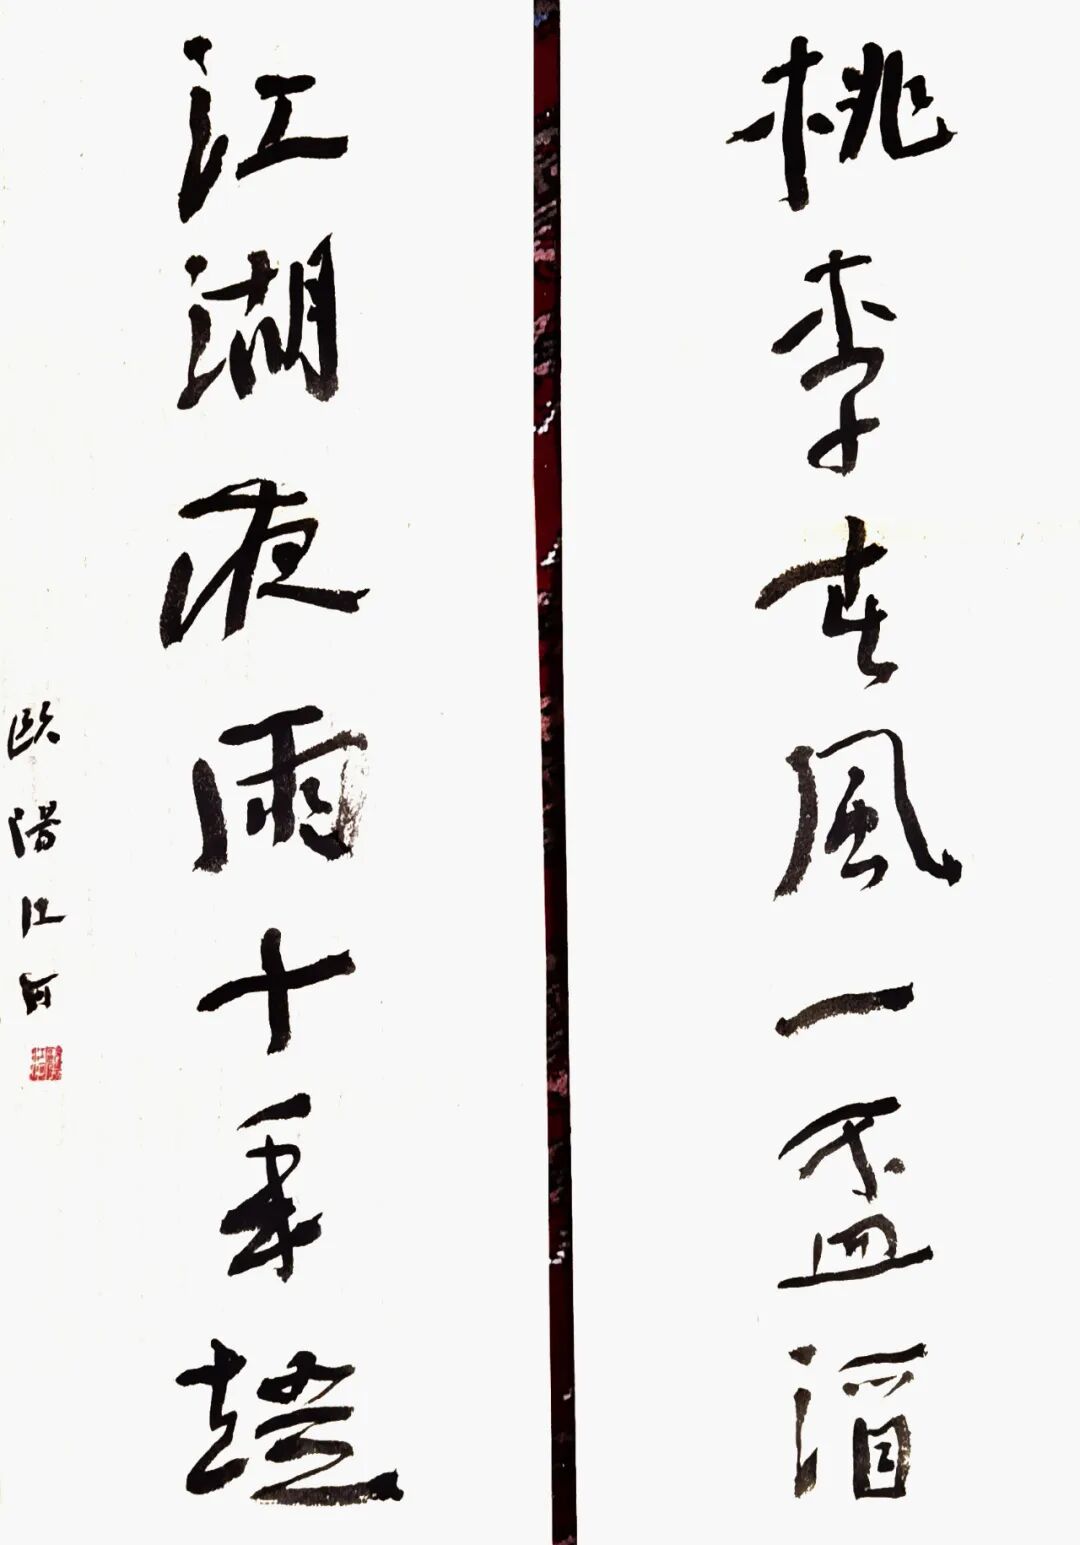 桃李春風一盃酒
江湖夜雨十年燈
歐陽江河